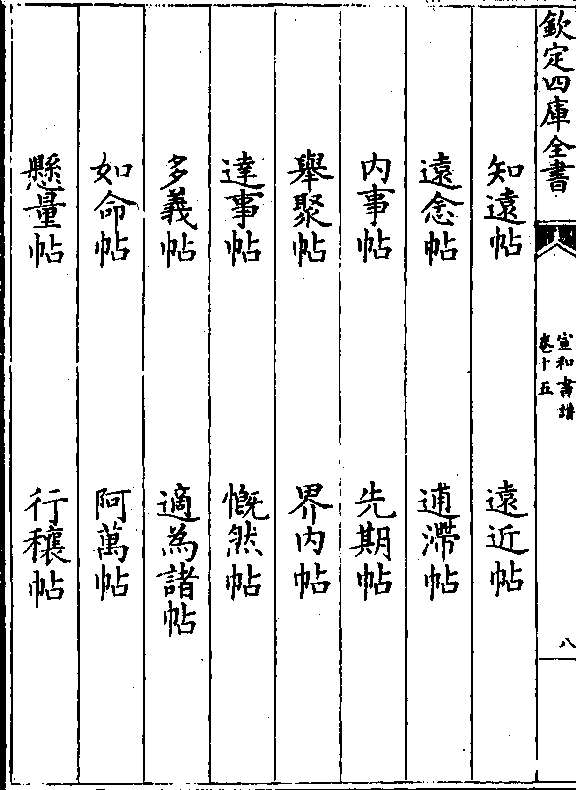 欽定四庫全書
宣和書譜
卷十五
八
知遠帖　遠近帖
遠念帖　逋滯帖
内事帖　先期帖
舉聚帖　界内帖
達事帖　慨然帖
多義帖　適為諸帖
如命帖　阿萬帖
懸量帖　行穰帖